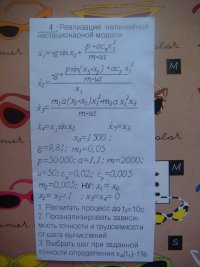 4 Реализация нелинейной
нестационарной модели
ẋ₁=-g sin x₂ + (p - ac_x x₁²)/(m-ut)
ẋ₂= (-g + (p sin(x₃-x₂) + ac_y x₁²)/(m-ut))/x₁
ẋ₃= (m₁a(x₂-x₃)x₁² - m₂a x₁²x₃)/(m-ut)
ẋ₄=x₁ sin x₂ ẋ₅=x₃
x₆=1500;
g=9,81; m₁=0,05
p=50000; a=1,1; m=2000;
u=50; cₓ=0,02; c_y=0,005
m₂=0,005; НУ: x₁ = x₆
x₂=x₅=1 ; x₃=x₄=0
1 Расчитать процесс да t₁=10с
2 Проанализировать зависи-
мость точности и трудоемкости
от шага вычислений.
3 Выбрать шаг при заданной
точности определения x₄(t₁)-1%